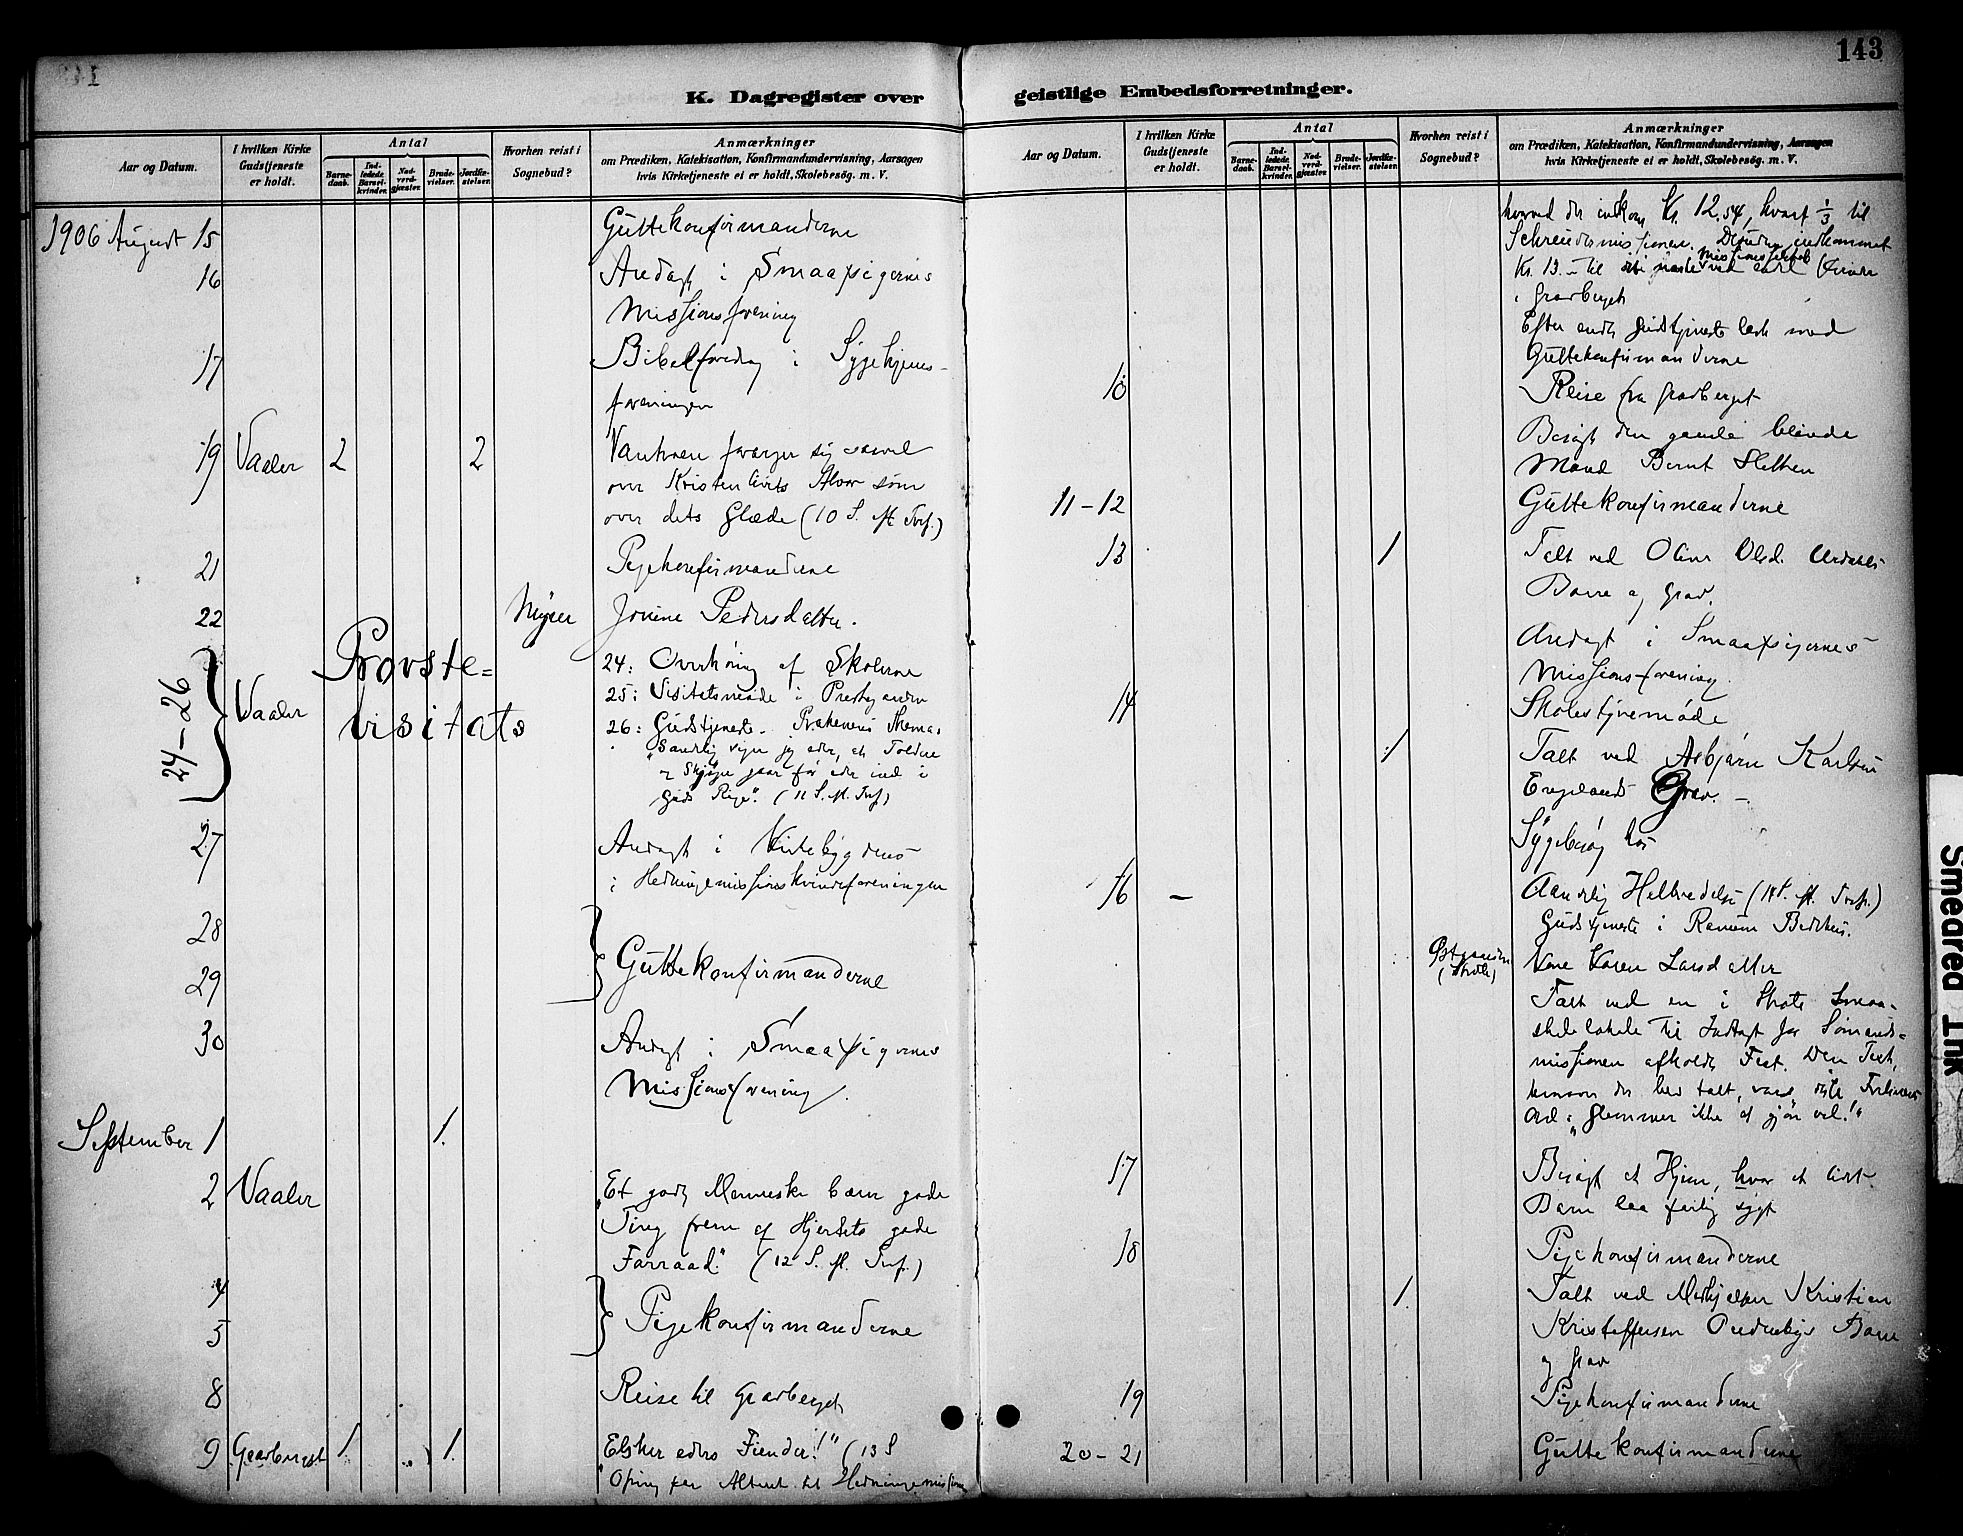 143
K. Dagregister over geistlige Embedsforretninger.
Aar og Datum.
I hvilken Kirke Gudstjeneste er holdt.
Antal
Barnedaab.
Indledede Barselkvinder.
Nadverdgjæster.
Brudevielser.
Jordfæstelser.
Hvorhen reist i Sognebud?
Anmærkninger
om Prædiken, Katekisation, Konfirmandundervisning, Aarsagen
hvis Kirketjeneste ei er holdt, Skolebesög. m. V.
1906 August 15 Guttekonfirmanderne
16 Andagt i Smaapigernes
Missionsforening
17 Bibelforedrag i Sygehjems-
foreningen
19 Vaaler 2 2 Vantroen forarger sig saavel
over Kristenlivets Alvor som
over dets Glæde (10 S. eft. Tref.)
21 Pigekonfirmanderne
22 Jonine Pedersdatter.
24-26 Vaaler Provste=
visitats
24: Overhøring af Skolerne
25: Visitatsmøde i Prestegaarden
26: Gudstjeneste. Prækenens Thema:
"Sandelig siger jeg eder, at Toldere
og Skjøger gaar før eder ind i
Guds Rige". (11 S. eft. Tref.)
27 Andagt i
Hedningemissionskvindeforeningen
28
29 Guttekonfirmanderne
30 Andagt i Smaapigernes
Missionsforening.
September 1 1.
2 Vaaler "Et godt Menneske bærer gode
Ting frem af Hjertets gode
Forraad." (12 S. eft. Tref.)
4
5 Pigekonfirmanderne
8 Reise til Gravberget
9 Gravberget 1. 1. "Elsker eders Fiender!" (13 S
Ofring paa Alteret til Hedningemissionen
Aar og Datum.
I hvilken Kirke Gudstjeneste er holdt.
Antal
Barnedaab.
Indledede Barselkvinder.
Nadverdgjæster.
Brudevielser.
Jordfæstelser.
Hvorhen reist i Sognebud?
Anmærkninger
om Prædiken, Katekisation, Konfirmandundervisning, Aarsagen
hvis Kirketjeneste ei er holdt, Skolebesög. m. V.
hvorved der indkom Kr. 12.54, hvoraf 1/3 til
Schreudermissionen. Desuden indkommet
Kr. 13.- til
i Gravberget
Efter endt Gudstjeneste læst med
Guttekonfirmanderne
10 Reise fra Gravberget
Besøgt den gamle blinde
Mand Bernt
11-12 Guttekonfirmanderne
13 1 Talt ved Oline Olsd.
Baare og Grav.
Andagt i Smaapigernes
Missionsforening.
14 Skolestyremøde
1 Talt ved Asbjørn Karlsen
Grav. -
Sygebesøg hos
16 - Aandelig Helbredelse (14 S. eft. Tref.)
Gudstjeneste i Bedehus.
Karen Larsdatter
Talt ved en i Smaa-
skolelokale til Indtægt for Sømands-
missionen afholdt Fest. Den Text,
hvorover der blev talt, var
Ord: "Glemmer ikke at gjøre vel!"
17 Besøgt et Hjem, hvor et lidet
Barn laa farlig sygt
18 Pigekonfirmanderne
1. Talt ved Medhjelper Kristian
Kristoffersen Baare
og Grav
19 Pigekonfirmanderne
20-21 Guttekonfirmanderne
Smeared Ink